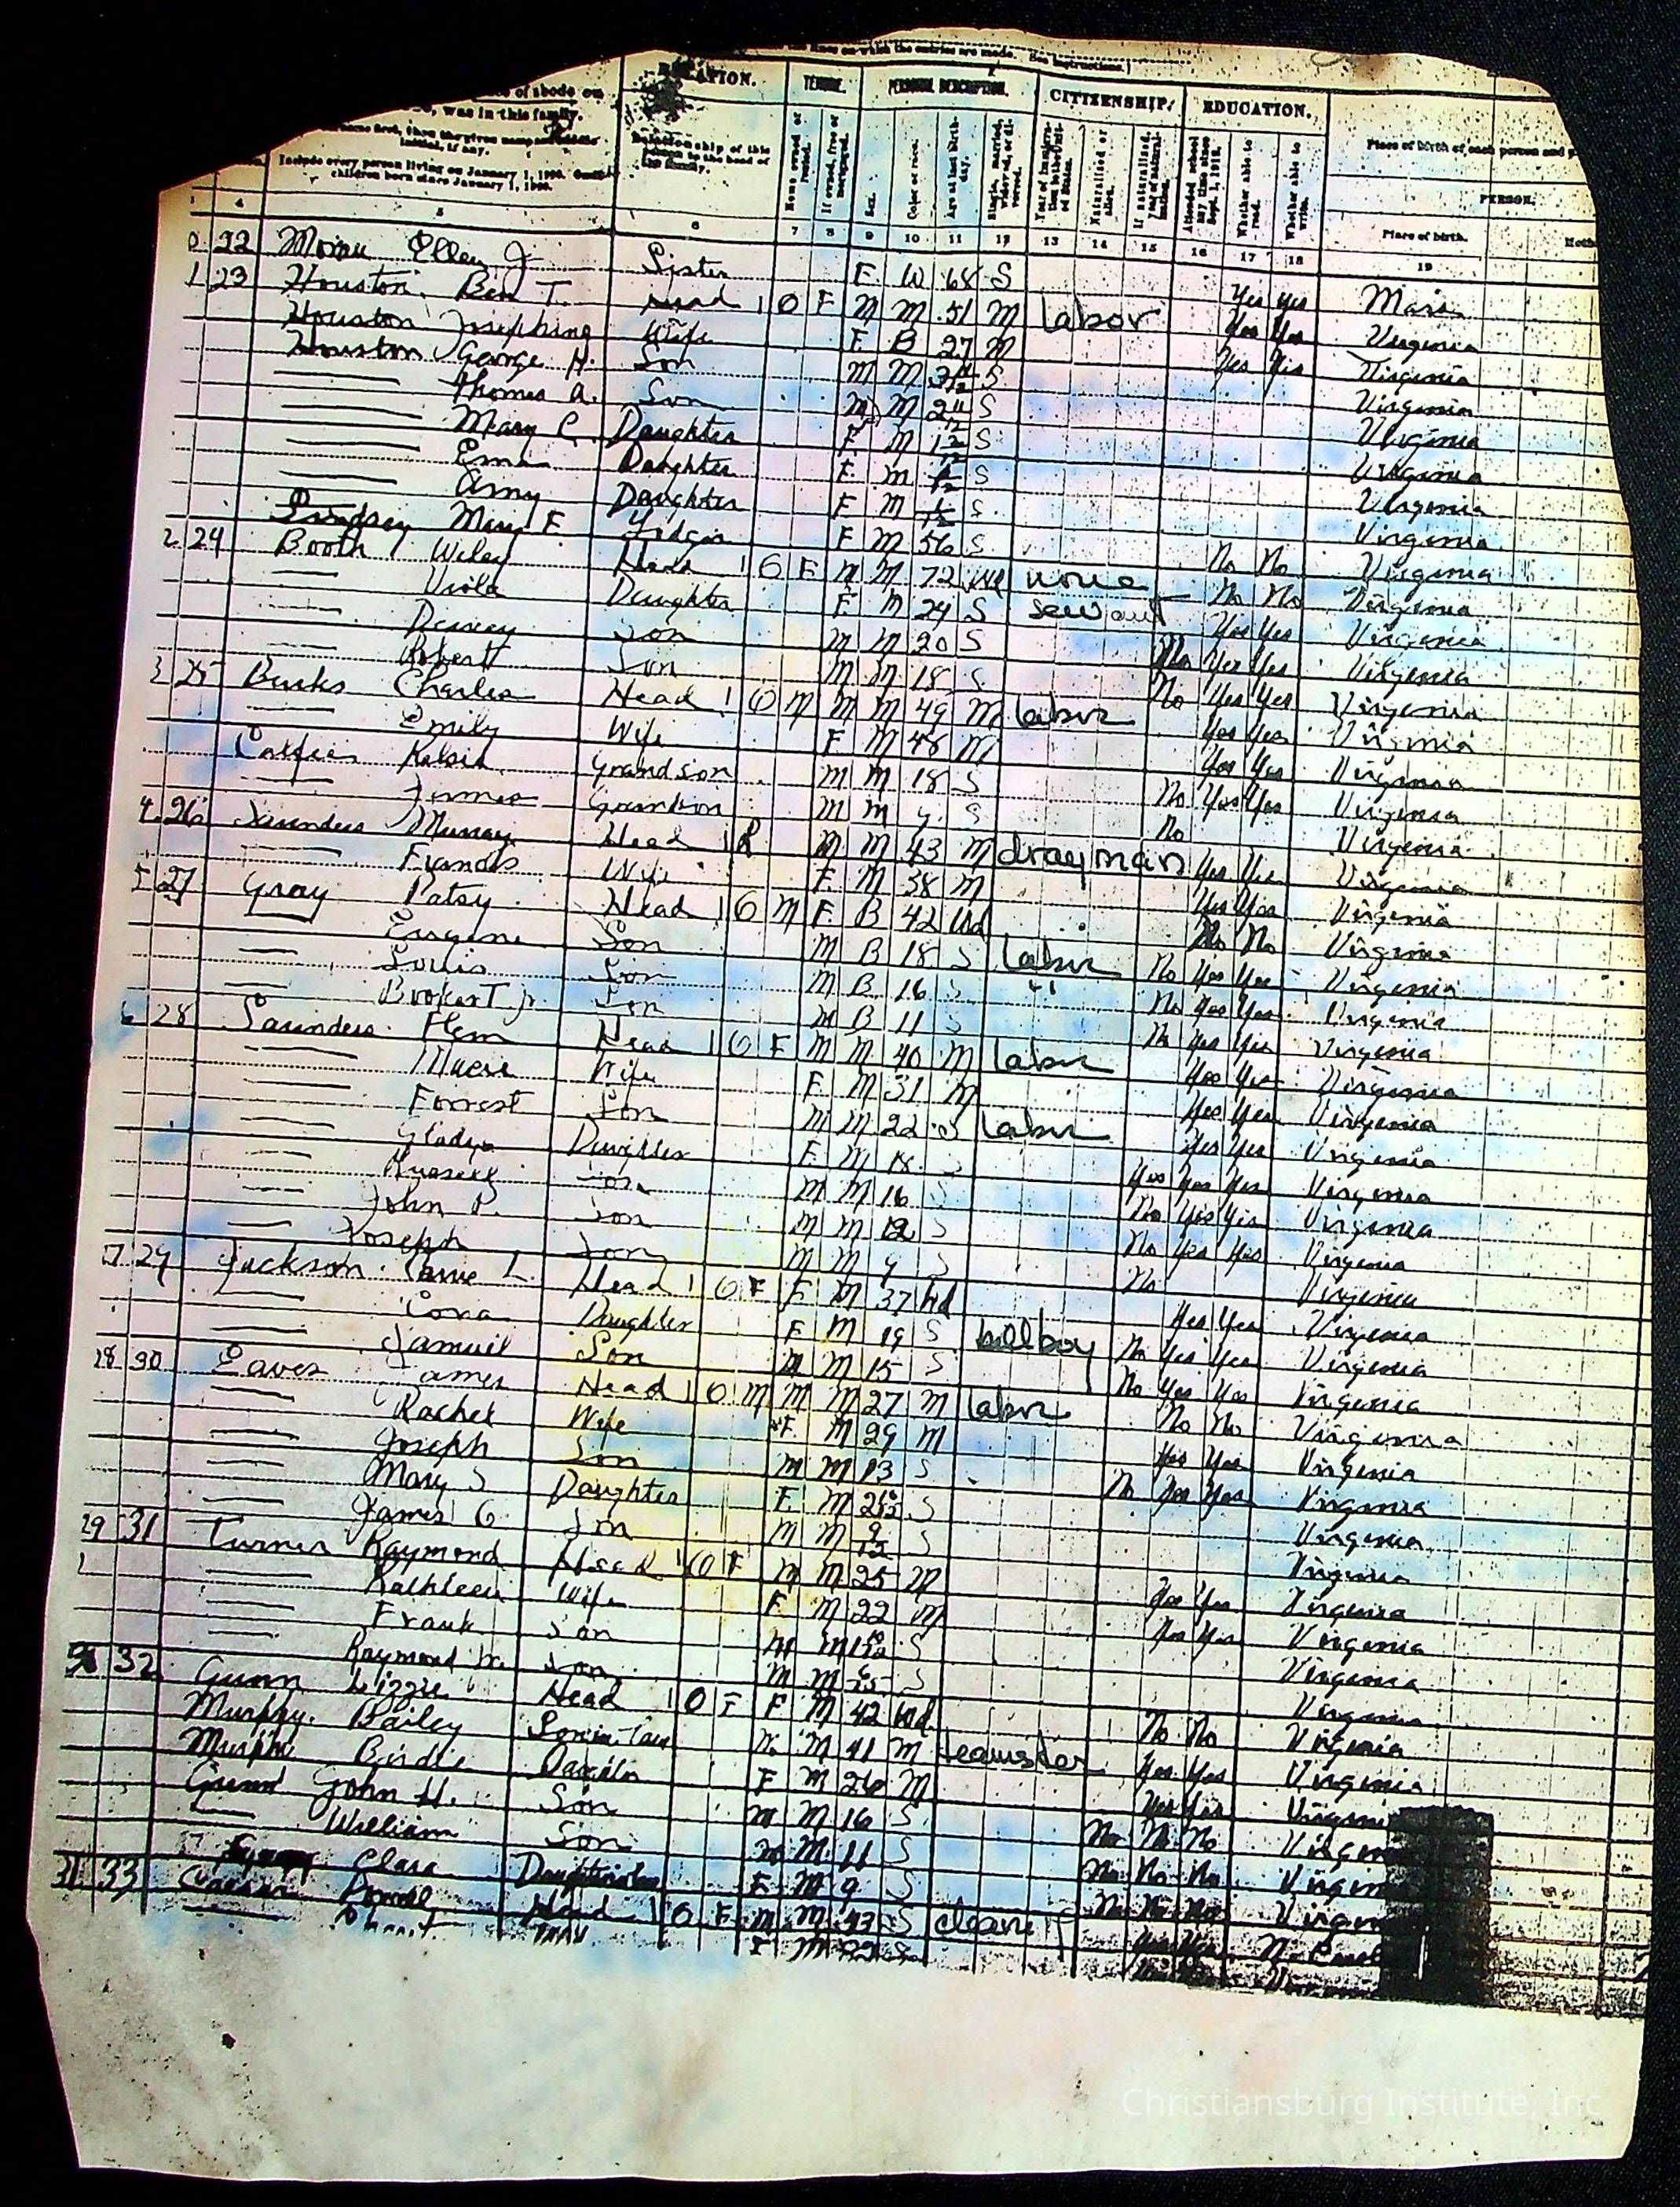 lines on which the entries are made. See instructions.)
RELATION. TENURE. PERSONAL DESCRIPTION. CITIZENSHIP. EDUCATION.
of abode on
, was in this family.
initial, if any.
Include every person living on January 1, 1920. Omit
children born since January 1, 1920.
Relationship of this person to the head of the family.
Home owned or rented.
If owned, free or mortgaged.
Sex.
Color or race.
Age at last birthday.
Single, married, widowed, or divorced.
Year of immigration to the United States.
Naturalized or alien.
If naturalized, year of naturalization.
Attended school any time since Sept. 1, 1919.
Whether able to read.
Whether able to write.
Place of birth of each person and p
PERSON.
Place of birth.
4 5 6 7 8 9 10 11 12 13 14 15 16 17 18 19
22 Ellen J Sister F W 68 S Yes Yes
1 23 Houston Ben T. Head 1 O F M M 51 M labor Yes Yes Virginia
Houston Josephine Wife F B 27 M Yes Yes Virginia
Houston George H. Son M M S Virginia
Thomas A. Son M M S Virginia
Mary C. Daughter F M S Virginia
Daughter F M S Virginia
Amy Daughter F M S Virginia
Lindsey Mary F F M 56 S No No Virginia
2 24 Booth Wiley Head 1 O F M M 72 Wd none No No Virginia
Viola Daughter F M 24 S servant Yes Yes Virginia
Son M M 20 S No Yes Yes Virginia
Robert Son M M 18 S No Yes Yes Virginia
3 25 Burks Charles Head 1 O M M M 49 M labor Yes Yes Virginia
Emily Wife F M 48 M Yes Yes Virginia
Grandson M M 18 S No Yes Yes Virginia
Grandson M M S No Virginia
4 26 Saunders Murray Head 1 R M M 43 M drayman Yes Yes Virginia
Francis Wife F M 38 M Yes Yes Virginia
5 27 Gray Patsy Head 1 O M F B 42 Wd No No Virginia
Eugene Son M B 18 S labor No Yes Yes Virginia
Louis Son M B 16 S " No Yes Yes Virginia
Booker T. Jr. Son M B 11 S No Yes Yes Virginia
6 28 Saunders Flem Head 1 O F M M 40 M labor Yes Yes Virginia
Wife F M 31 M Yes Yes Virginia
Forrest Son M M 22 S labor Yes Yes Virginia
Gladys Daughter F M 18 S Yes Yes Yes Virginia
Russell Son M M 16 S No Yes Yes Virginia
John P. Son M M 12 S No Yes Yes Virginia
Joseph Son M M 9 S No Virginia
29 Jackson L. Head 1 O F F M 37 Wd Yes Yes Virginia
Cora Daughter F M 19 S No Yes Yes Virginia
Samuel Son M M 15 S bellboy No Yes Yes Virginia
28 30 Eaves James Head 1 O M M M 27 M labor No No Virginia
Rachel Wife F M 29 M Yes Yes Virginia
Joseph Son M M 13 S No Yes Yes Virginia
Mary S Daughter F M S Virginia
James G. Son M M S Virginia
29 31 Turner Raymond Head 1 O F M M 25 M Yes Yes Virginia
Kathleen Wife F M 22 M Yes Yes Virginia
Frank Son M M S Virginia
Raymond Jr. Son M M S Virginia
32 Gunn Lizzie Head 1 O F F M 42 Wd No No Virginia
Murphy Bailey Son in law M M 41 M teamster Yes Yes Virginia
Murphy Birdie F M 26 M Yes Yes
Gunn John H. Son M M 16 S No No No
William Son M M 11 S No No No
Clara F M 9 S No No No
31 33 Head 1 O F M M 43 S
Christiansburg Institute, Inc